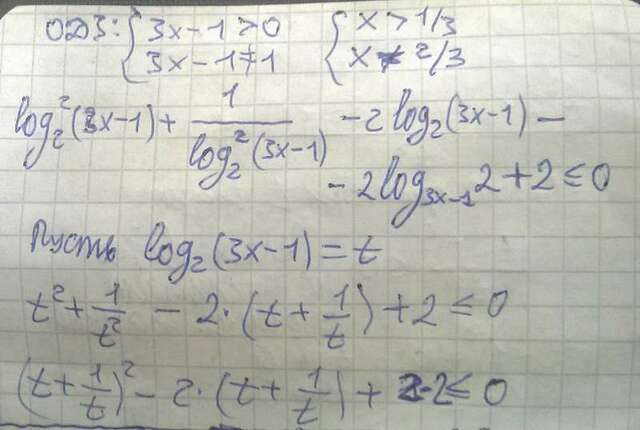 ОДЗ: { 3x-1>0 { x>1/3
{ 3x-1≠1 { x≠2/3
log₂²(3x-1) + 1/log₂²(3x-1) - 2log₂(3x-1) -
- 2log₃ₓ₋₁2 + 2 ≤ 0
Пусть log₂(3x-1) = t
t² + 1/t² - 2·(t + 1/t) + 2 ≤ 0
(t + 1/t)² - 2·(t + 1/t) + 2-2 ≤ 0